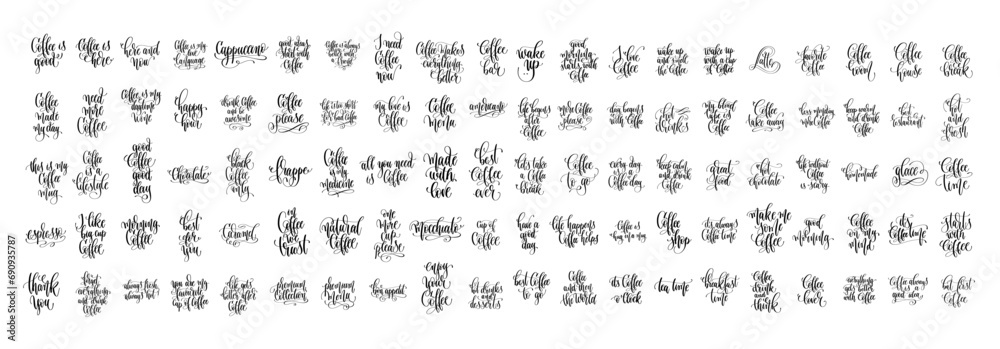 Coffee is good
Coffee is here
here and now
Coffee is my love language
Cappuccino
good ideas start with Coffee
Coffee is always better with a friend
I need Coffee now
Coffee makes everything better
Coffee bar
wake up
good morning starts with Coffee
I love Coffee
wake up and smell the Coffee
wake up with a cup of Coffee
Latte
favorite Coffee
Coffee room
Coffee house
Coffee break
Coffee made my day
need more Coffee
Coffee is my daytime wine
happy hour
drink Coffee and do awesome
Coffee please
life is too short for bad Coffee
my love is Coffee
Coffee menu
americano
life begins after Coffee
more Coffee please
day begins with Coffee
hot drinks
my blood type is Coffee
Coffee take away
less monday more Coffee
keep warm and drink Coffee
hot restaurant
hot and fresh
this is my Coffee mug
Coffee is a lifestyle
good Coffee good day
Chocolate
black Coffee only
frappe
Coffee is my medicine
all you need is Coffee
made with love
best Coffee ever
let's take a Coffee break
Coffee to go
every day a Coffee day
keep calm and drink Coffee
great food
hot chocolate
life without Coffee is scary
homemade
glace
Coffee time
espresso
I like big cup of Coffee
morning Coffee
best for you
Caramel
in Coffee we trust
natural Coffee
one more cup please
mocchiato
Cup of Coffee
have a good day
life happens Coffee helps
Coffee is a hug in a mug
Coffee shop
it's always Coffee time
make me some Coffee
good morning
Coffee on my mind
it's Coffee time
start with Coffee
thank you
always fresh always hot
you are my favourite cup of Coffee
life gets better after Coffee
premium Collection
premium menu
bon appetit
enjoy your Coffee
hot drinks and desserts
best Coffee to go
Coffee then and then the world
it's Coffee o'clock
tea time
breakfast time
Coffee drink and think
Coffee lover
everything gets better with Coffee
Coffee always is a good idea
but first Coffee
Adobe Stock | #690935787